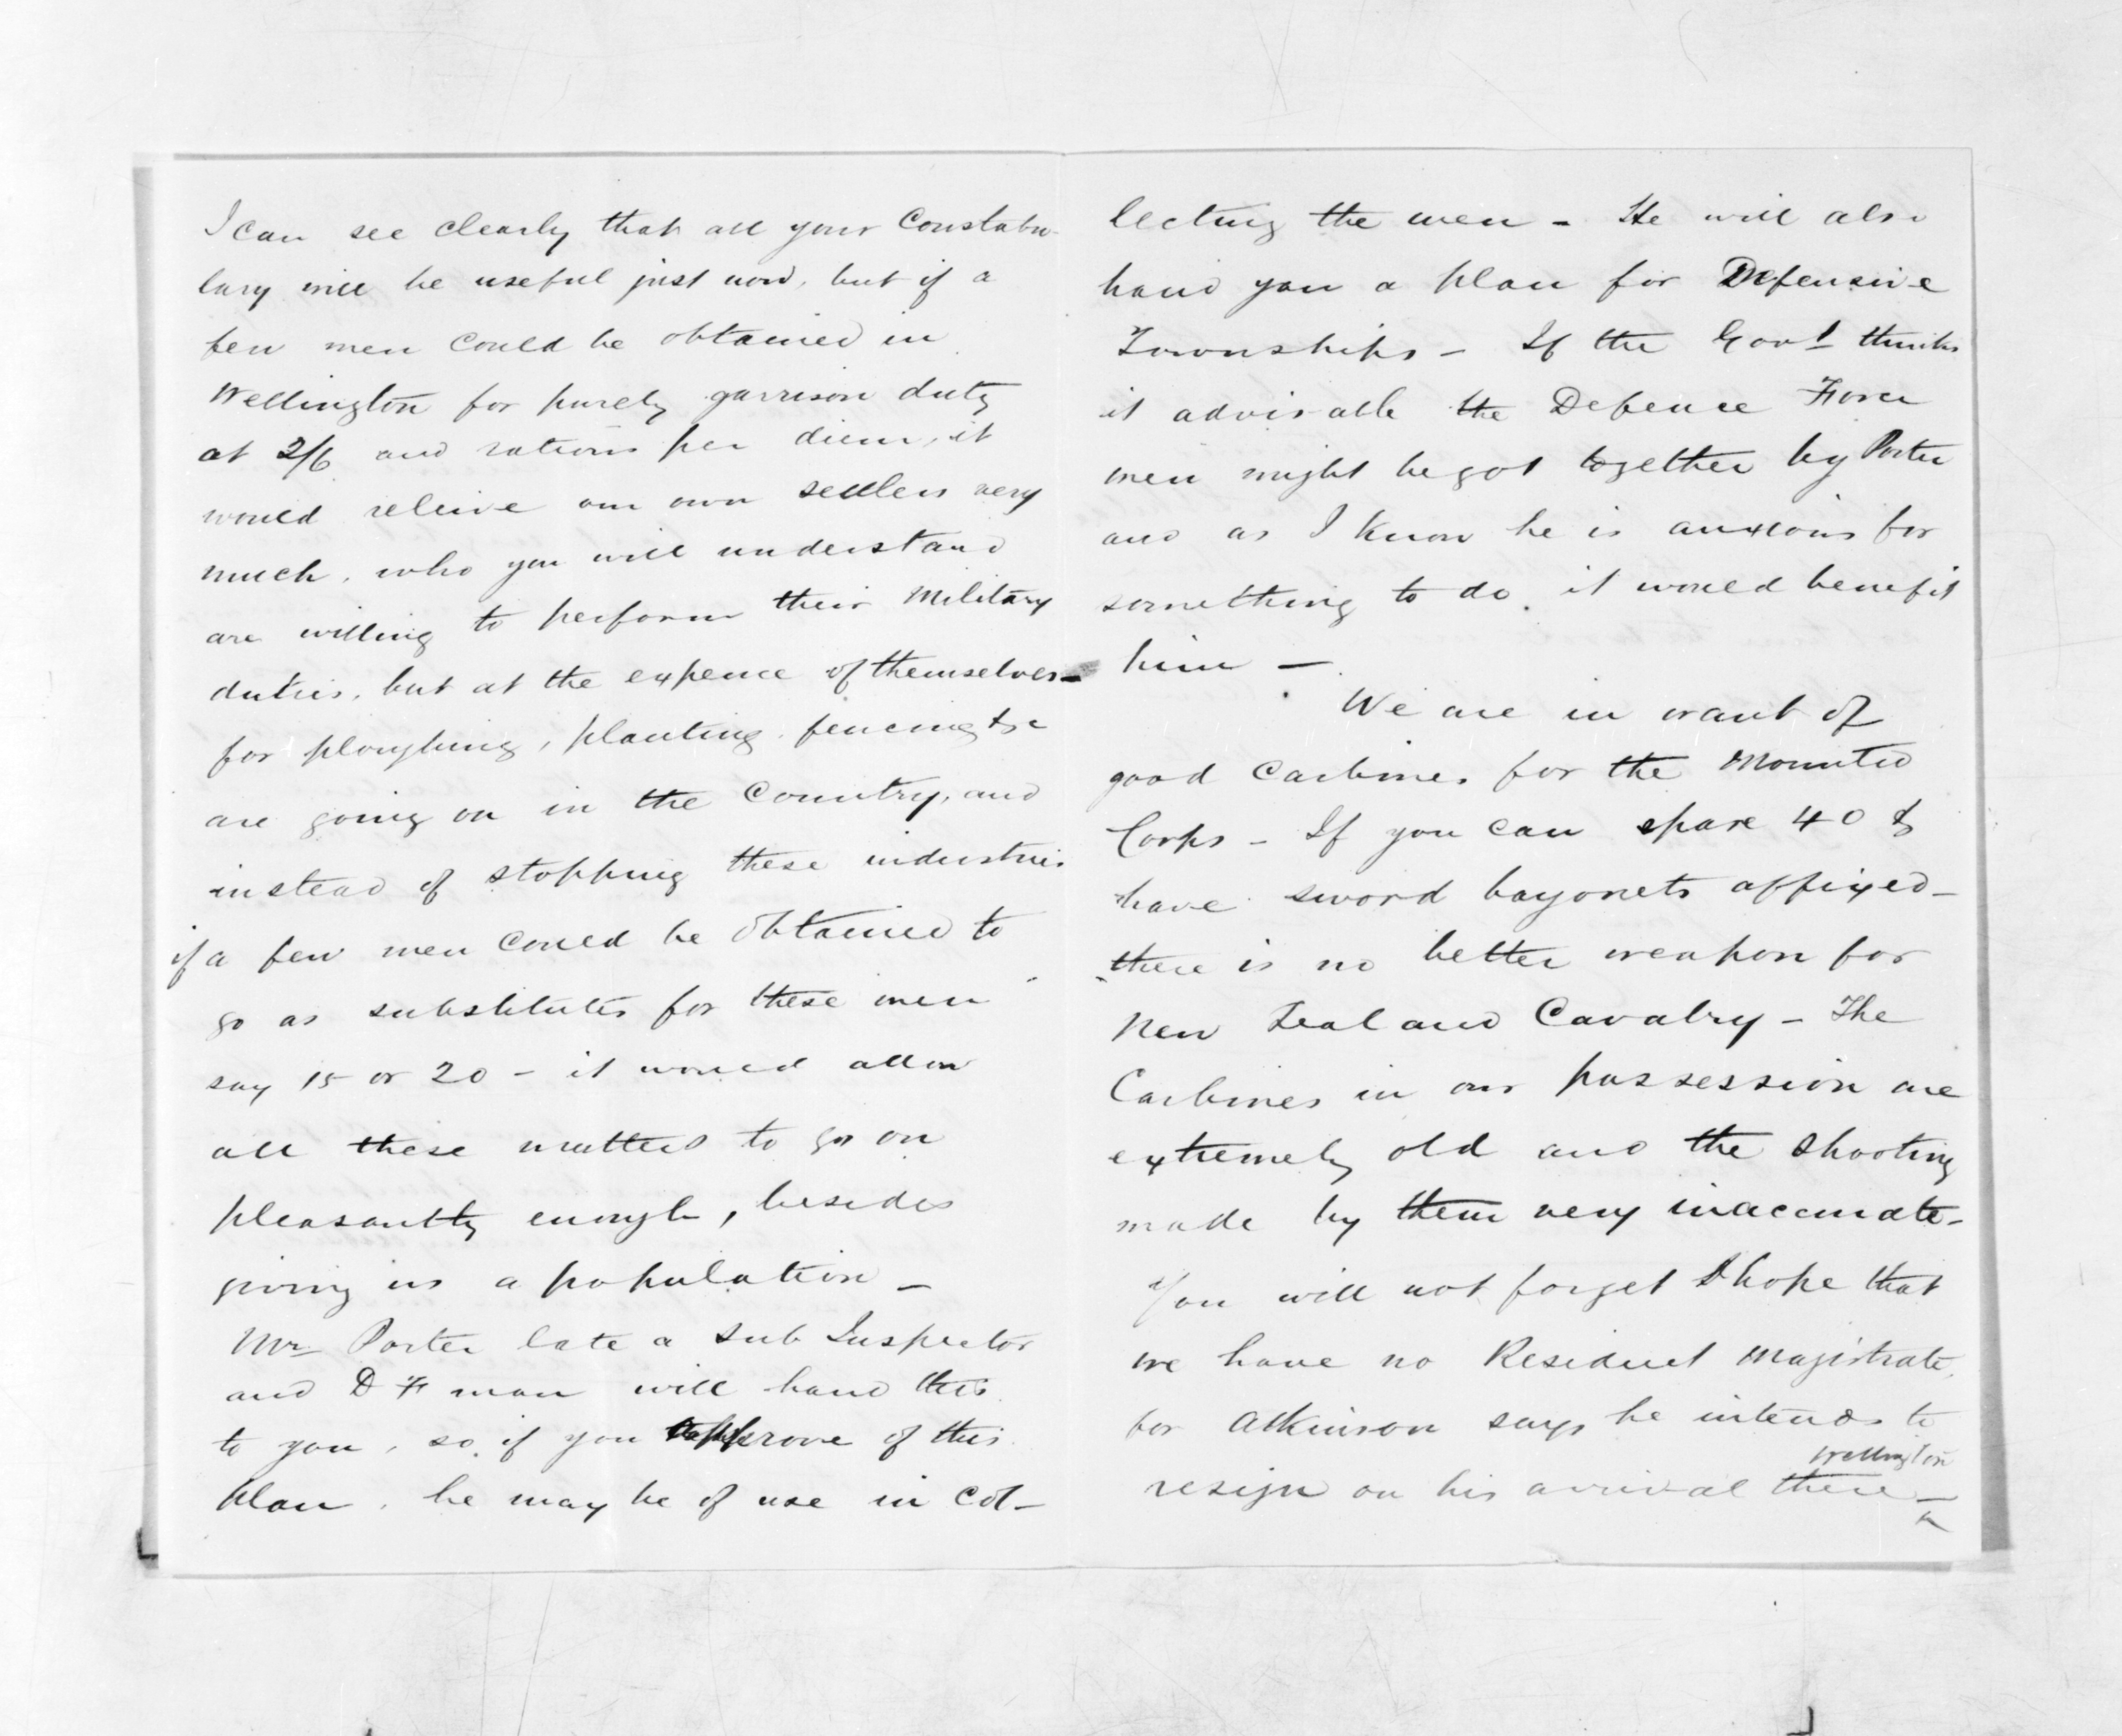 I can see clearly that all your Constabu-
lary will be useful just now, but if a
few men could be obtained in
Wellington for purely garrison duty
at 2/6 and rations per diem, it
would relieve our own settlers very
much, who you will understand
are willing to perform their Military
duties, but at the expence of themselves -
for ploughing, planting, fencing &c
are going on in the Country, and
instead of stopping these industries
if a few men could be obtained to
go as substitutes for these men
say 15 or 20 - it would allow
all these matters to go on
pleasantly enough, besides
giving us a population -
Mr Porter late a Sub Inspector
and D F man will hand this
to you, so if you approve of this
plan, he may be of use in col-
lecting the men - He will also
hand you a plan for Defensive
Townships - If the Govt thinks
it advisable the Defence Force
men might be got together by Porter
and as I know he is anxious for
something to do, it would benefit
him -
We are in want of
good Carbines for the Mounted
Corps - If you can spare 40 &
have sword bayonets affixed -
there is no better weapon for
New Zealand Cavalry - The
Carbines in our possession are
extremely old and the shooting
made by them very inaccurate -
You will not forget I hope that
we have no Resident Magistrate,
for Atkinson says he intends to
Wellington
resign on his arrival there -